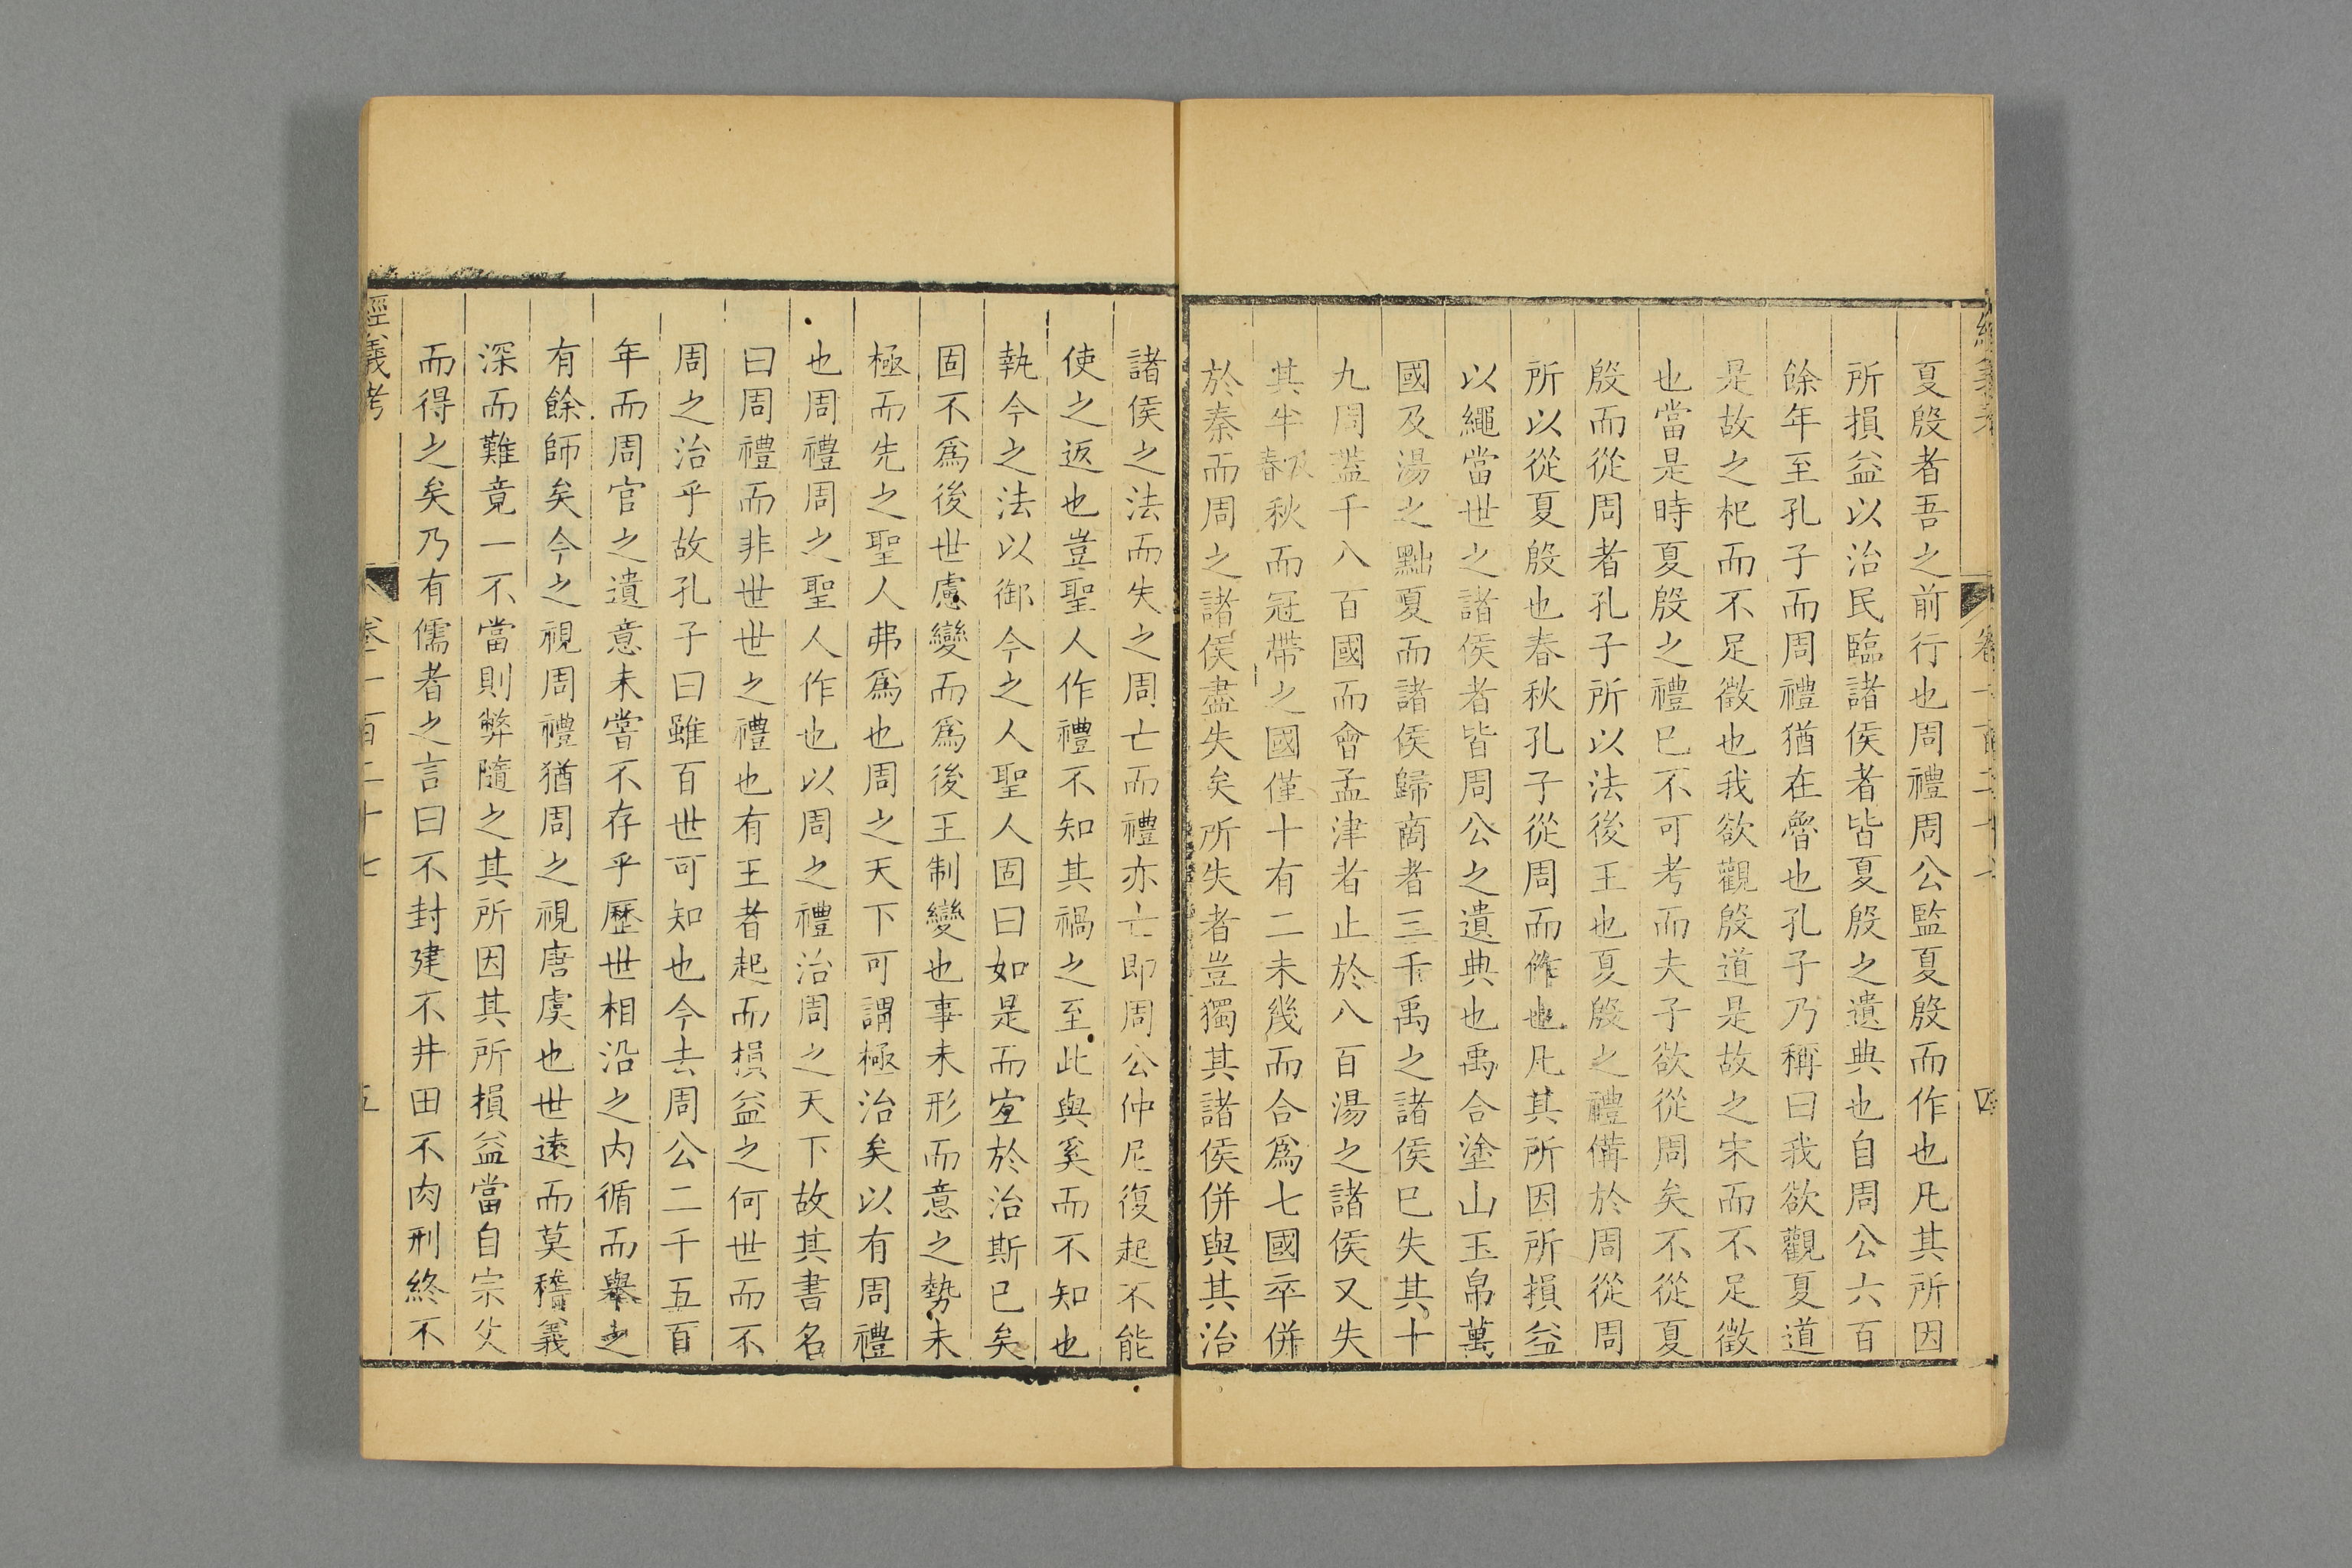 經義考 卷一百二十七 四
夏殷者吾之前行也周禮周公監夏殷而作也凡其所因
所損益以治民臨諸侯者皆夏殷之遺典也自周公六百
餘年至孔子而周禮猶在魯也孔子乃稱曰我欲觀夏道
是故之杞而不足徵也我欲觀殷道是故之宋而不足徵
也當是時夏殷之禮已不可考而夫子欲從周矣不從夏
殷而從周者孔子所以法後王也夏殷之禮備於周從周
所以從夏殷也春秋孔子從周而作也凡其所因所損益
以繩當世之諸侯者皆周公之遺典也禹合塗山玉帛萬
國及湯之黜夏而諸侯歸商者三千禹之諸侯已失其十
九周蓋千八百國而會孟津者止於八百湯之諸侯又失
其半春秋而冠帶之國僅十有二未幾而合爲七國卒併
於秦而周之諸侯盡失矣所失者豈獨其諸侯併與其治
諸侯之法而失之周亡而禮亦亡即周公仲尼復起不能
使之返也豈聖人作禮不知其禍之至此與奚而不知也
執今之法以御今之人聖人固曰如是而宜於治斯已矣
固不爲後世慮變而爲後王制變也事未形而意之勢未
極而先之聖人弗爲也周之天下可謂極治矣以有周禮
也周禮周之聖人作也以周之禮治周之天下故其書名
曰周禮而非世世之禮也有王者起而損益之何世而不
周之治乎故孔子曰雖百世可知也今去周公二千五百
年而周官之遺意未嘗不存乎歷世相沿之內循而舉之
有餘師矣今之視周禮猶周之視唐虞也世遠而莫稽義
深而難竟一不當則弊隨之其所因其所損益當自宗父
而得之矣乃有儒者之言曰不封建不井田不肉刑終不
經義考 卷一百二十七 五